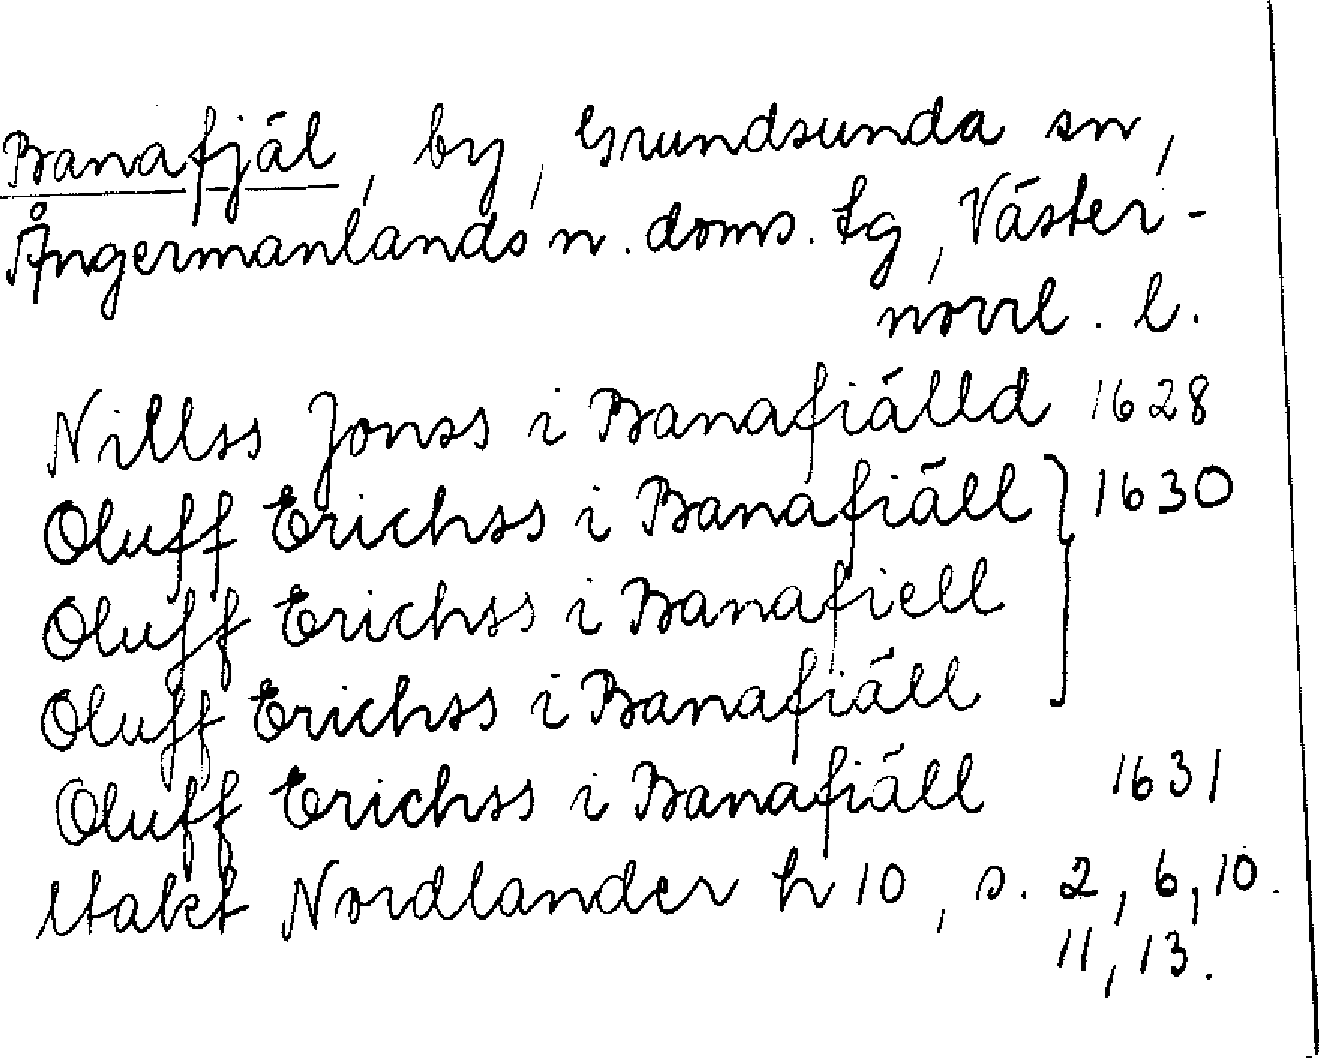 Banafjäl, by, Grundsunda sn,
Ångermanlands n. doms. tg, Väster-
norrl. l.
Nillss Jonss i Banafiälld 1628
Oluff Erichss i Banafiäll } 1630
Oluff Erichss i Banafiell
Oluff Erichss i Banafiäll
Oluff Erichss i Banafiäll 1631
Utakt Nordlander h 10, s. 2, 6, 10.
11, 13.